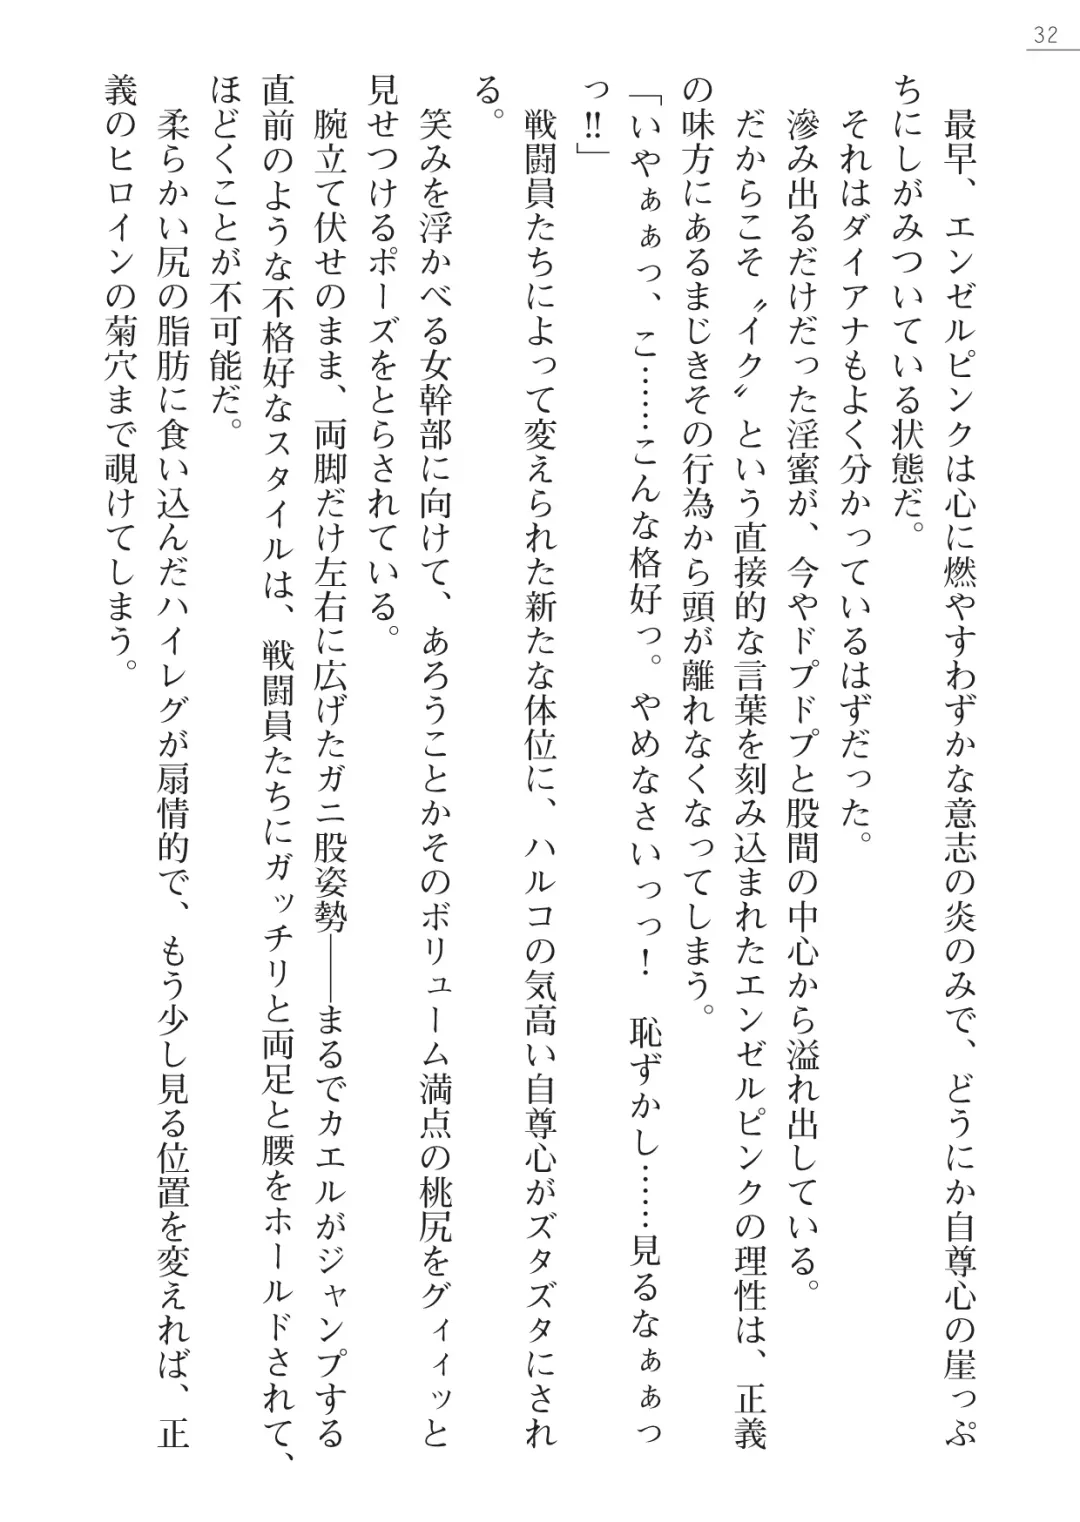 32
　最早、エンゼルピンクは心に燃やすわずかな意志の炎のみで、どうにか自尊心の崖っぷ
ちにしがみついている状態だ。
　それはダイアナもよく分かっているはずだった。
　滲み出るだけだった淫蜜が、今やドプドプと股間の中心から溢れ出している。
　だからこそ〝イク〟という直接的な言葉を刻み込まれたエンゼルピンクの理性は、正義
の味方にあるまじきその行為から頭が離れなくなってしまう。
「いやぁぁっ、こ……こんな格好っ。やめなさいっっ！　恥ずかし……見るなぁぁっ
っ‼」
　戦闘員たちによって変えられた新たな体位に、ハルコの気高い自尊心がズタズタにされ
る。
　笑みを浮かべる女幹部に向けて、あろうことかそのボリューム満点の桃尻をグィィッと
見せつけるポーズをとらされている。
　腕立て伏せのまま、両脚だけ左右に広げたガニ股姿勢――まるでカエルがジャンプする
直前のような不格好なスタイルは、戦闘員たちにガッチリと両足と腰をホールドされて、
ほどくことが不可能だ。
　柔らかい尻の脂肪に食い込んだハイレグが扇情的で、もう少し見る位置を変えれば、正
義のヒロインの菊穴まで覗けてしまう。